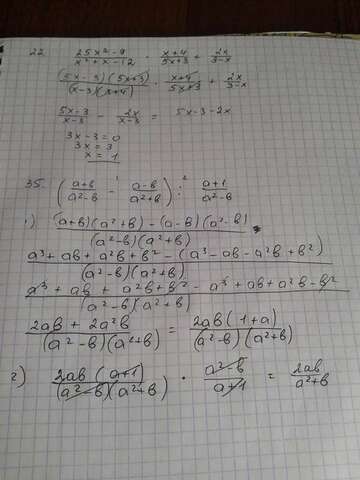 22. (25x² - 9)/(x² + x - 12) · (x+4)/(5x+3) + 2x/(3-x)
((5x-3)(5x+3))/((x-3)(x+4)) · (x+4)/(5x+3) + 2x/(3-x)
(5x-3)/(x-3) - 2x/(x-3) = 5x-3-2x
3x-3=0
3x=3
x=1
35. ((a+b)/(a²-b) - (a-b)/(a²+b)) : (a+1)/(a²-b)
1) ((a+b)(a²+b) - (a-b)(a²-b))/((a²-b)(a²+b))
(a³+ab+a²b+b² - (a³-ab-a²b+b²))/((a²-b)(a²+b))
(a³+ab+a²b+b²-a³+ab+a²b-b²)/((a²-b)(a²+b))
(2ab+2a²b)/((a²-b)(a²+b)) = (2ab(1+a))/((a²-b)(a²+b))
2) (2ab(a+1))/((a²-b)(a²+b)) · (a²-b)/(a+1) = 2ab/(a²+b)